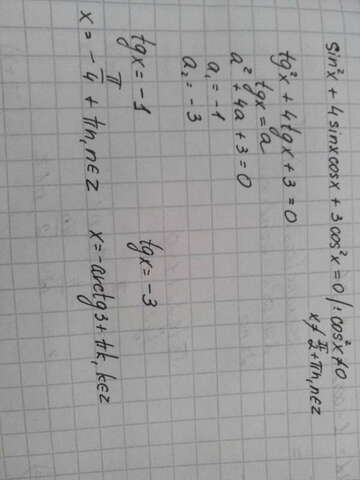 sin²x + 4 sinx cosx + 3 cos²x = 0 |: cos²x ≠ 0
x ≠ π/2 + πn, n∈z
tg²x + 4tgx + 3 = 0
tgx = a
a² + 4a + 3 = 0
a₁ = -1
a₂ = -3
tgx = -1 tgx = -3
x = -π/4 + πn, n∈z x = -arctg3 + πk, k∈z